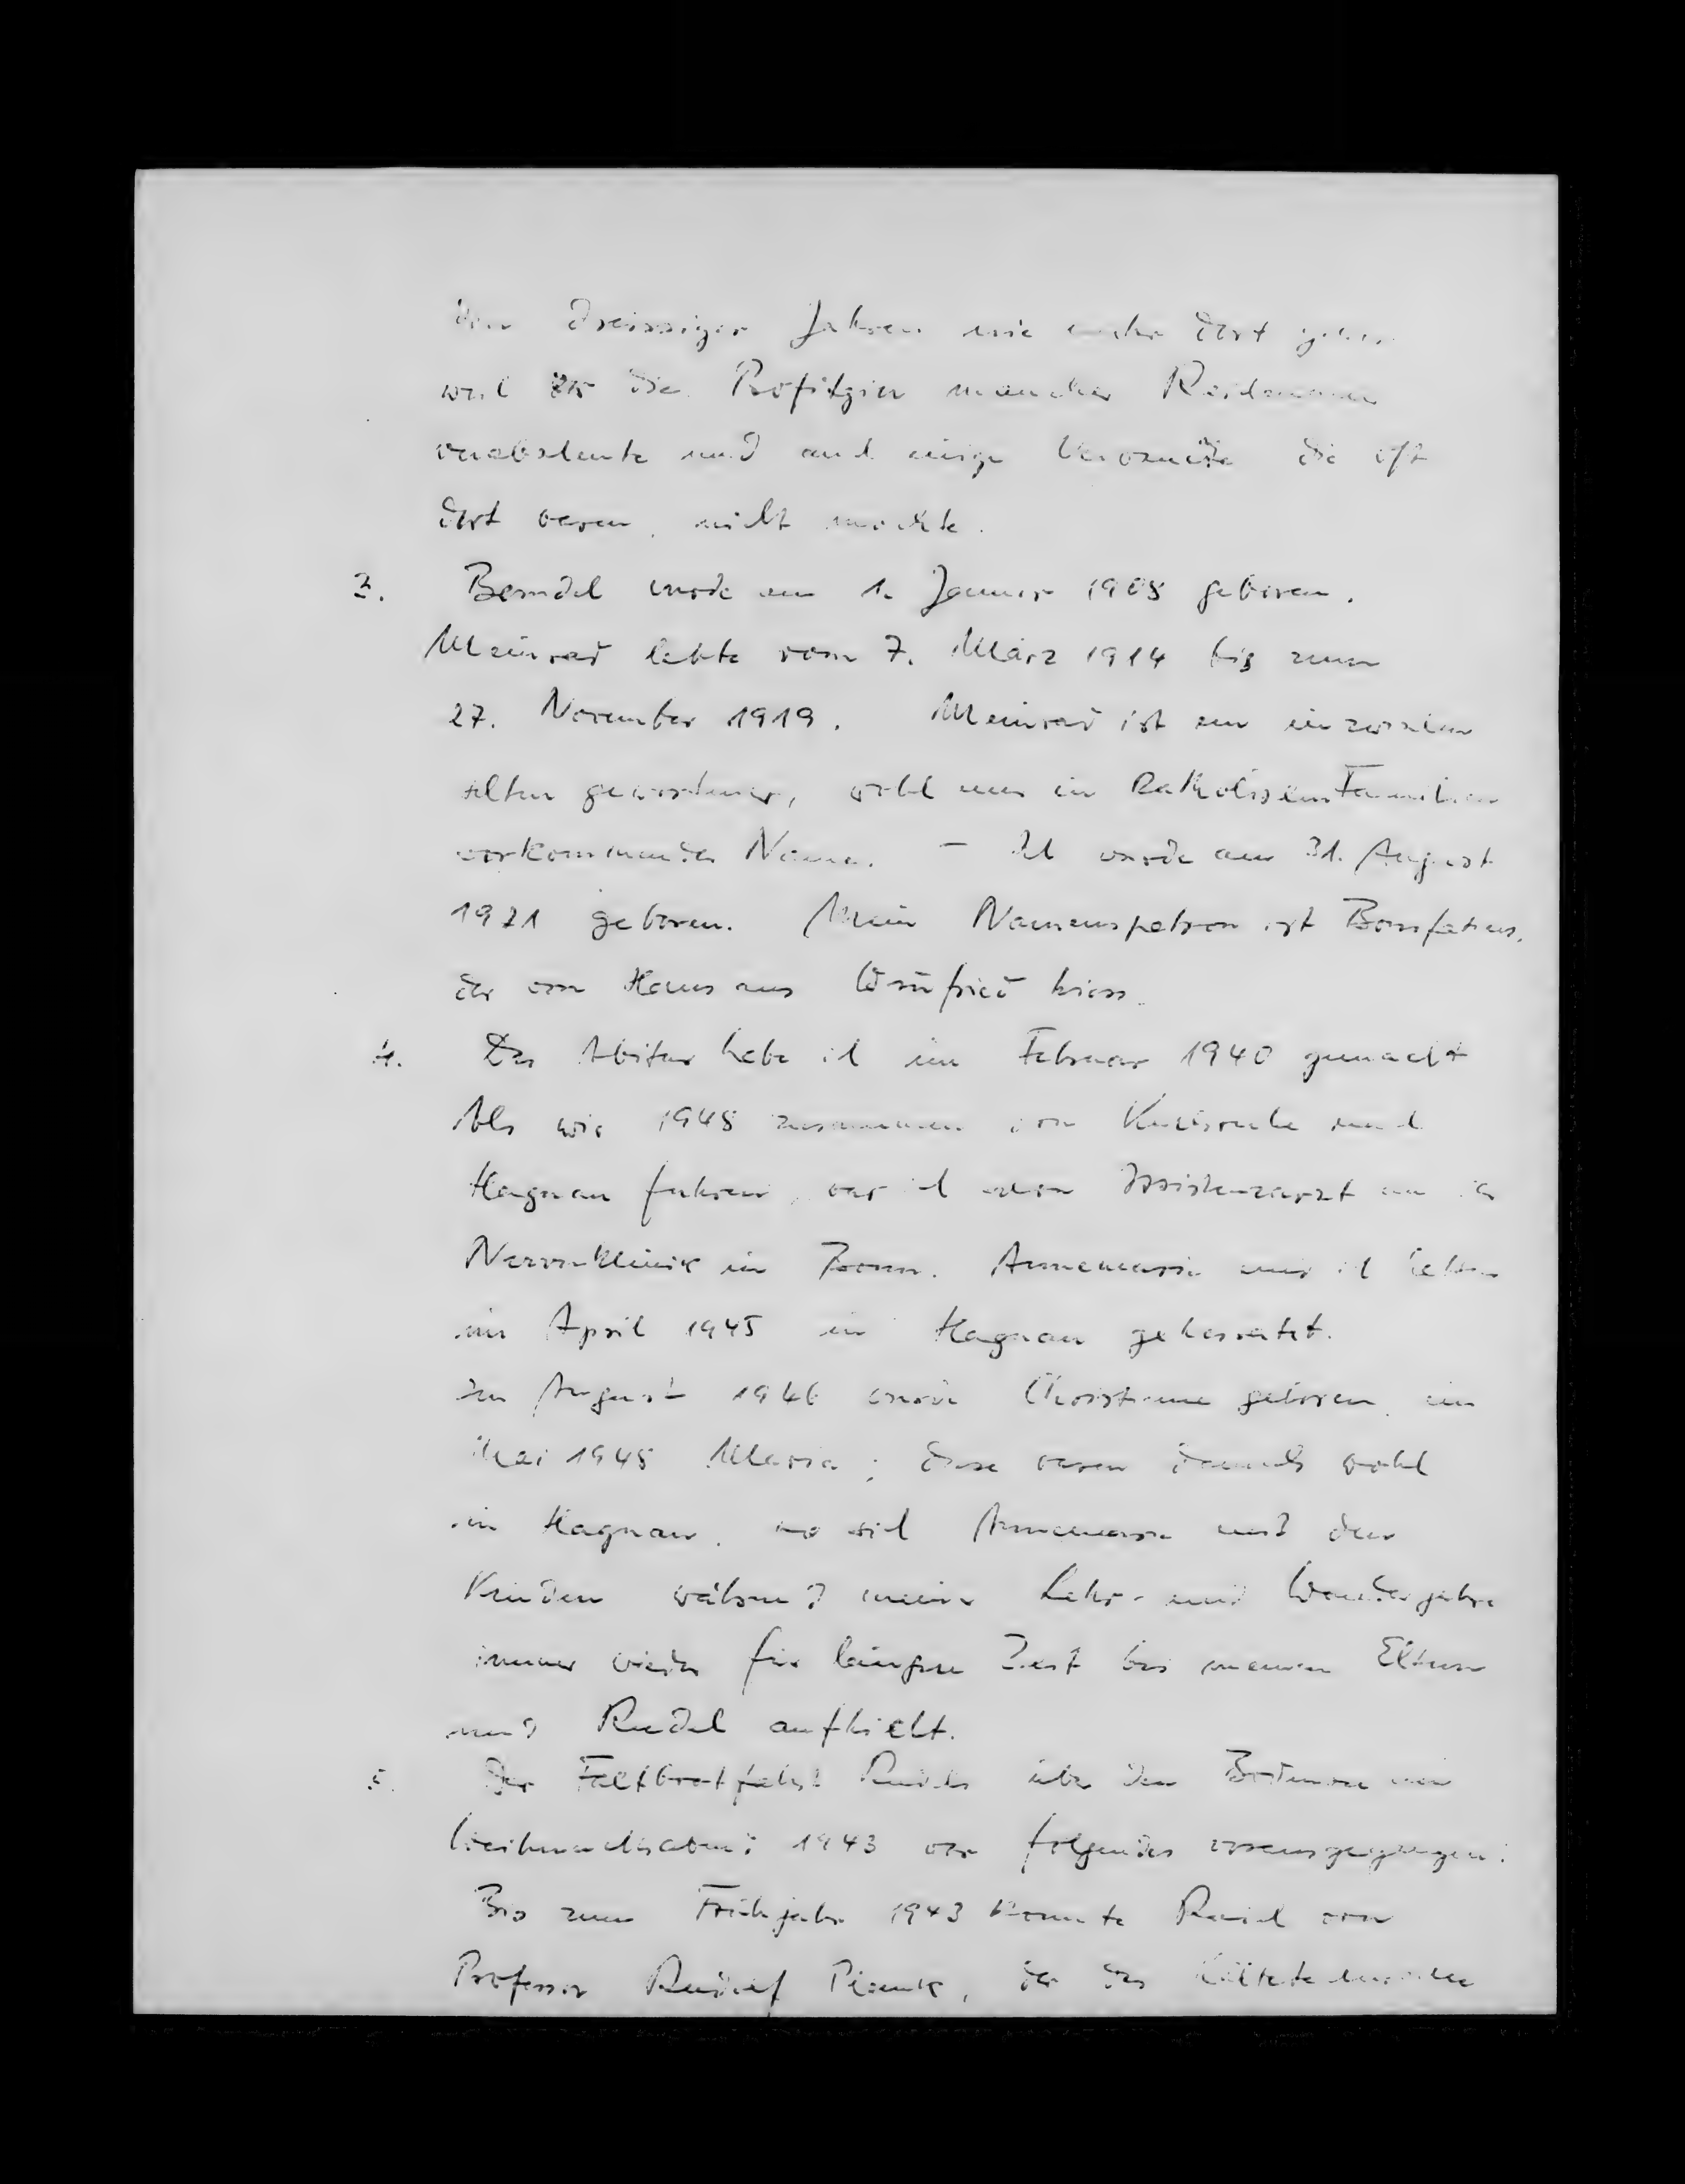 den dreissiger Jahren nie mehr dort
weil er die Profitgier mancher
verabscheute und auch einige Verwandte die oft
dort waren, nicht mochte.
3. Berndel wurde am 1. Januar 1908 geboren.
Meinrad lebte vom 7. März 1914 bis zum
27. November 1919. Meinrad ist ein inzwischen
selten gewordener, wohl nur in Katholischen Familien
vorkommender Name. – Ich wurde am 31. August
1921 geboren. Mein Namenspatron ist Bonifatius,
der von Haus aus Winfried hiess.
4. Das Abitur habe ich im Februar 1940 gemacht
Als wir 1948 zusammen von Karlsruhe nach
Hagnau fuhren, war ich schon Assistenzarzt an der
Nervenklinik in Bonn. Annemarie und ich hatten
im April 1945 in Hagnau geheiratet.
Im August 1946 wurde Christiane geboren, im
Mai 1948 Maria; diese waren damals wohl
in Hagnau, wo sich Annemarie mit den
Kindern während meiner Lehr- und Wanderjahre
immer wieder für längere Zeit bei meinen Eltern
und Rudel aufhielt.
5. Der Faltbootfahrt Rudels über den Bodensee am
Weihnachsabend 1943 war folgendes vorausgegangen:
Bis zum Frühjahr 1943 konnte Rudel von
Professor Rudolf Plank, der das